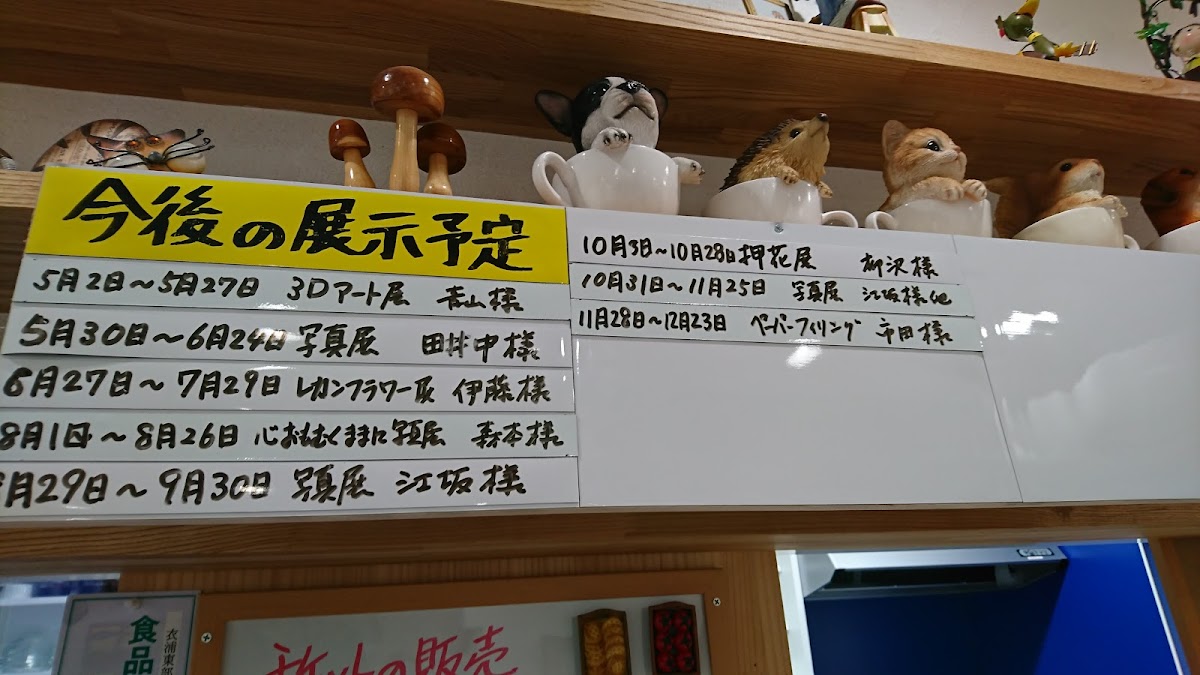 今後の展示予定
5月2日〜5月27日 3Dアート展 青山様
5月30日〜6月24日 写真展 田井中様
6月27日〜7月29日 レカンフラワー展 伊藤様
8月1日〜8月26日 心おもむくままに写真展 森本様
月29日〜9月30日 写真展 江坂様
10月3日〜10月28日 押花展 柳沢様
10月31日〜11月25日 写真展 江坂様他
11月28日〜12月23日 ペーパーフィリング 市田様
衣浦東部
食品
の販売